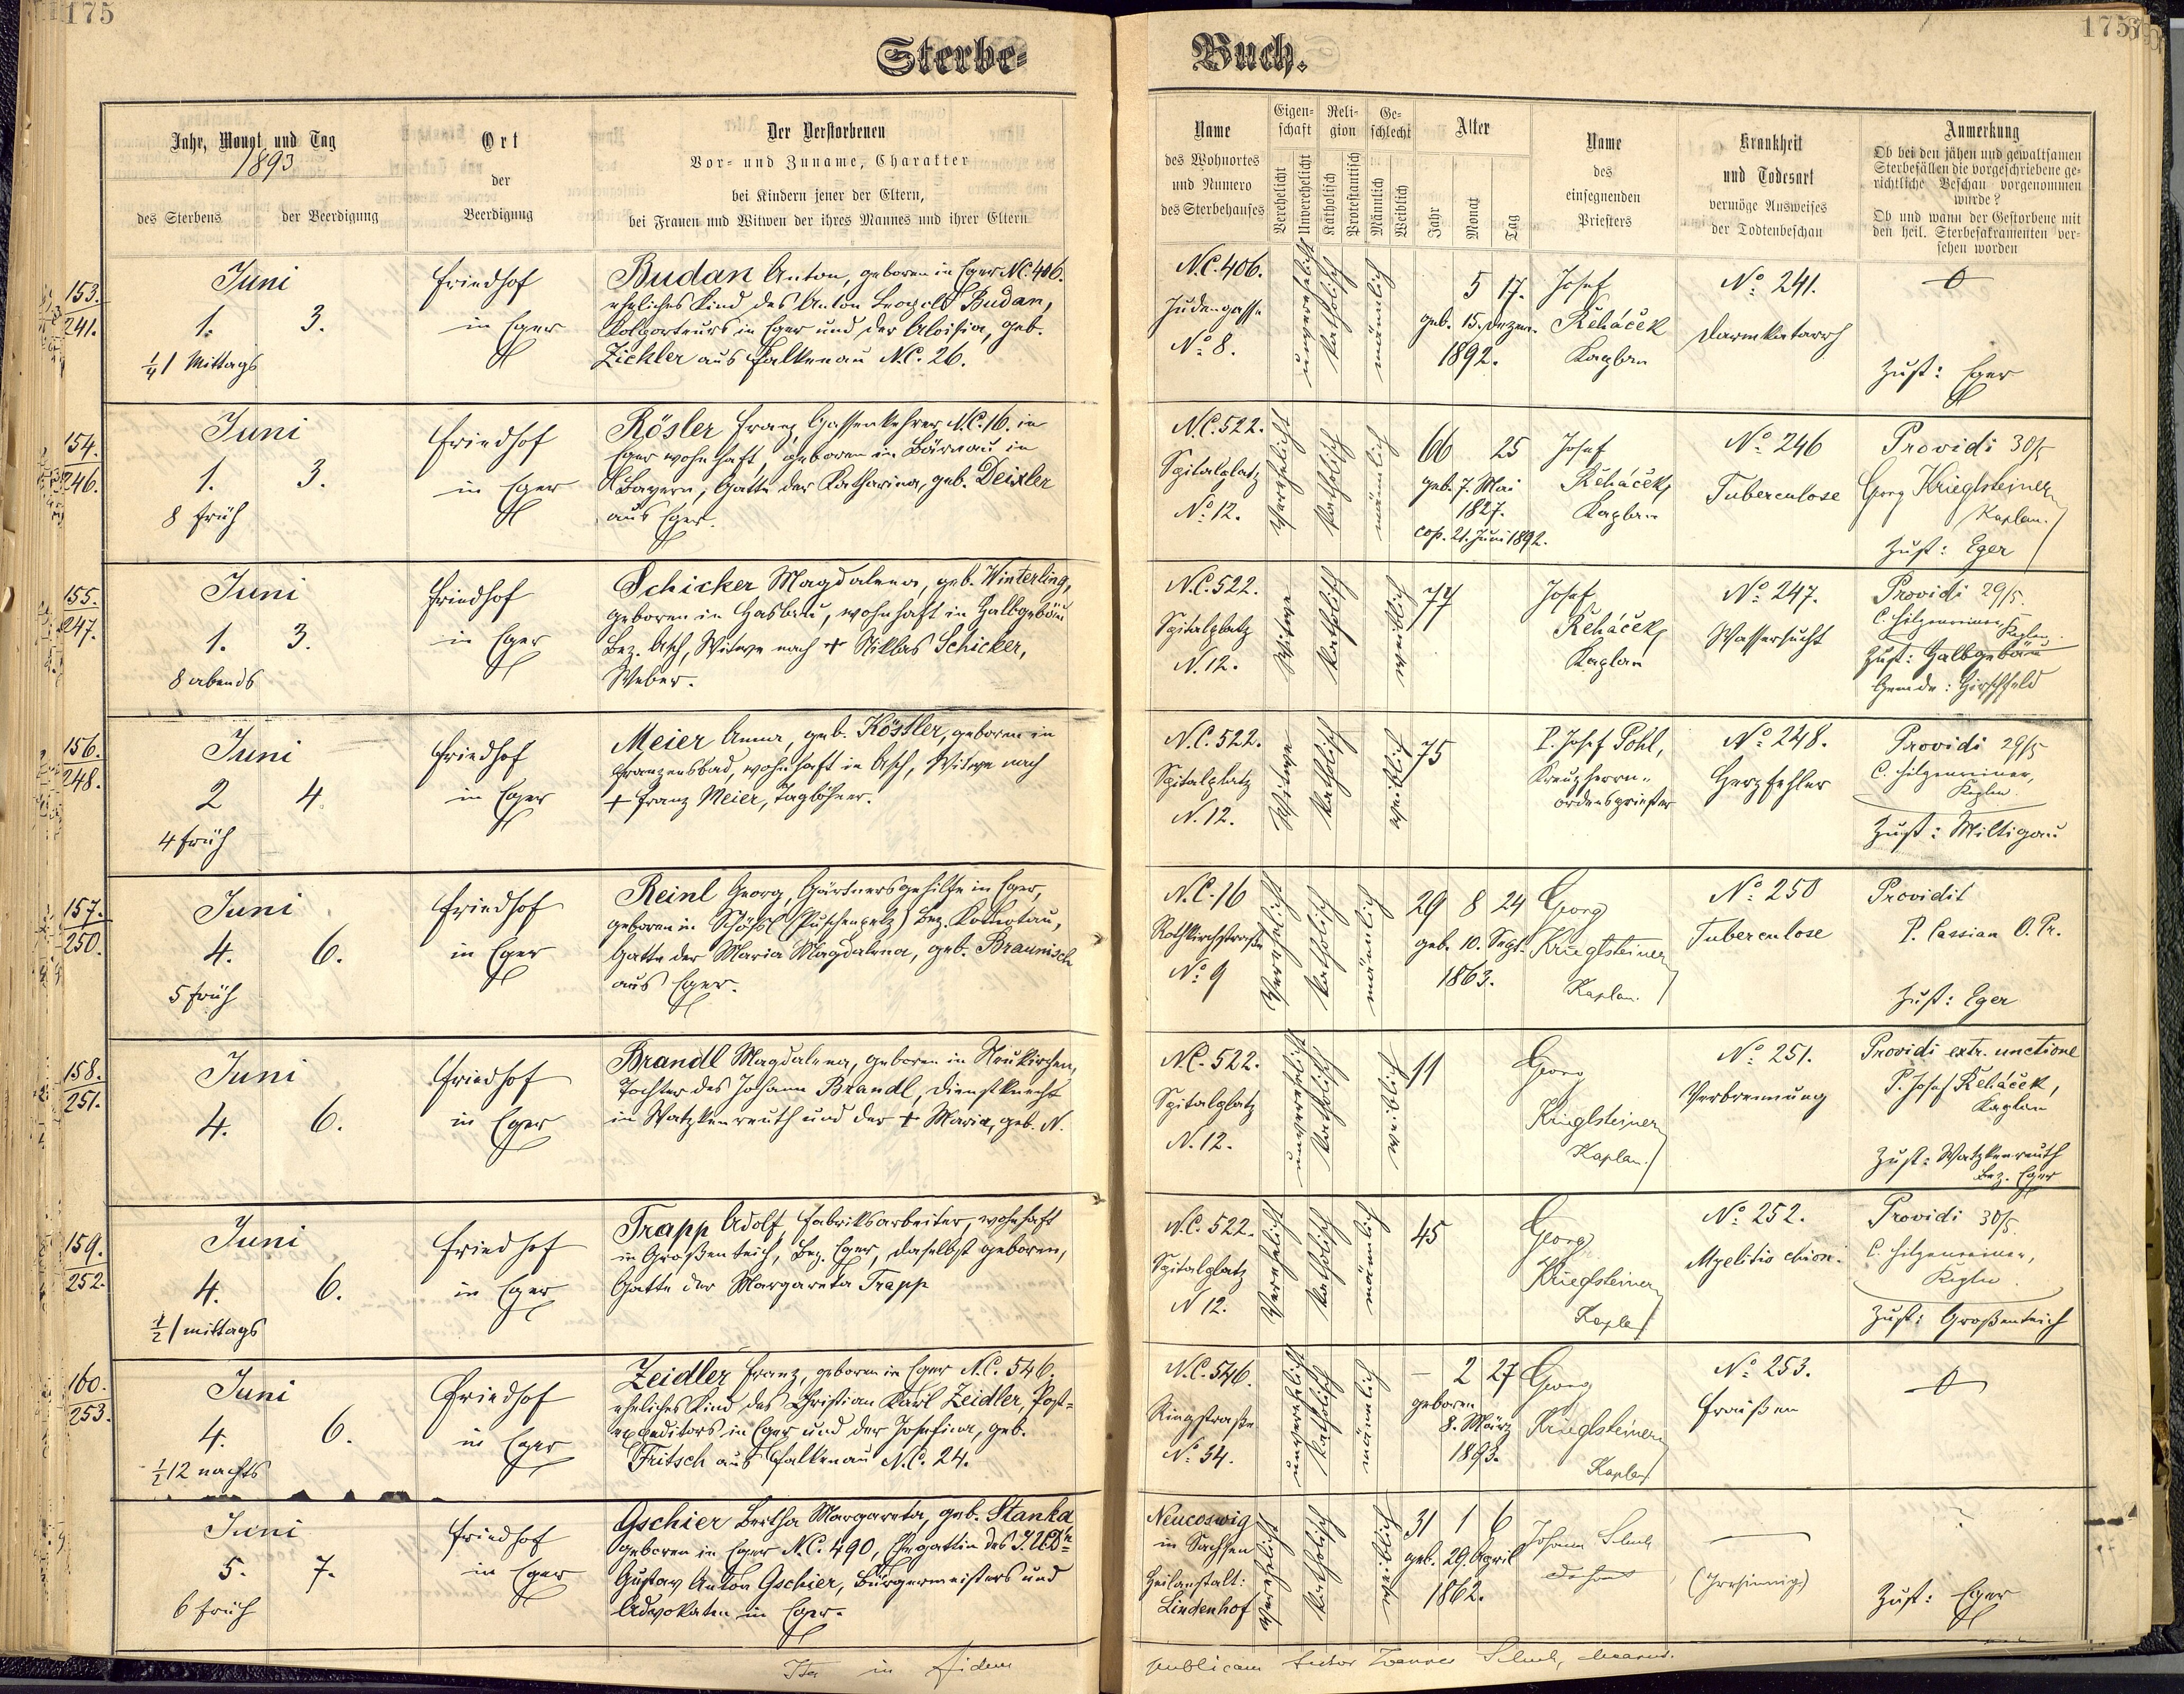 175
175
Sterbe-
Buch.
Jahr, Monat und Tag
1893
des Sterbens
der Beerdigung
Ort
der
Beerdigung
Der Verstorbenen
Vor- und Zuname, Charakter
bei Kindern jener der Eltern,
bei Frauen und Witwen der ihres Mannes und ihrer Eltern
Name
des Wohnortes
und Numero
des Sterbehauses
Eigen-
schaft
Verehelicht
Unverehelicht
Reli-
gion
Katholisch
Protestantisch
Ge-
schlecht
Männlich
Weiblich
Alter
Jahr
Monat
Tag
Name
des
einsegnenden
Priesters
Krankheit
und Todesart
vermöge Ausweises
der Todtenbeschau
Anmerkung
Ob bei den jähen und gewaltsamen
Sterbefällen die vorgeschriebene ge-
richtliche Beschau vorgenommen
wurde?
Ob und wann der Gestorbene mit
den heil. Sterbesakramenten ver-
sehen worden
153.
241.
Juni
1. 3.
1/4 1 Mittags
Friedhof
in Eger
Budan Anton, geboren in Eger N.C. 406.
eheliches Kind des Anton Leopold Budan,
Kolporteurs in Eger und der Aloisia, geb.
Zickler aus Falkenau N.C. 26.
N.C. 406.
Judengasse
No 8.
unverehelicht
katholisch
männlich
5 17.
geb. 15. Dezem.
1892.
Josef
Řeháček
Kaplan
No 241.
Darmkatarrh
Zust: Eger
154.
246.
Juni
1. 3.
8 früh
Friedhof
in Eger
Rösler Franz, Gassenkehrer N.C. 16. in
Eger wohnhaft, geboren in Bärnau in
Bayern, Gatte der Katharina, geb. Deixler
aus Eger.
N.C. 522.
Spitalplatz
No 12.
Verehelicht
katholisch
männlich
66 25
geb. 7. Mai
1827.
cop. 21. Juni 1892.
Josef
Řeháček,
Kaplan
No 246
Tuberculose
Providi 30/5
Georg Krieglsteiner
Kaplan.
Zust: Eger
155.
247.
Juni
1. 3.
8 abends
Friedhof
in Eger
Schicker Magdalena, geb. Winterling,
geboren in Haslau, wohnhaft in Halbgebäu
Bez. Asch, Witwe nach + Niklas Schicker,
Weber.
N.C. 522.
Spitalplatz
N. 12.
Witwe
katholisch
weiblich
77
Josef
Řeháček,
Kaplan
No 247.
Wassersucht
Providi 29/5.
C. Hilgenreiner,
Kaplan.
Zust: Halbgebäu
Gemde: Hirschfeld
156.
248.
Juni
2 4.
4 früh
Friedhof
in Eger
Meier Anna, geb. Köstler, geboren in
Franzensbad, wohnhaft in Asch, Witwe nach
+ Franz Meier, Taglöhner.
N.C. 522.
Spitalplatz
N. 12.
Witwe
katholisch
weiblich
75
P. Josef Pohl,
Kreuzherrn-
ordenspriester
No 248.
Herzfehler
Providi 29/5
C. Hilgenreiner,
Kaplan.
Zust: Miltigau
157.
250.
Juni
4. 6.
5 früh
Friedhof
in Eger
Reinl Georg, Gärtnersgehilfe in Eger,
geboren in Schößl (Puschenpelz) Bez. Komotau,
Gatte der Maria Magdalena, geb. Braunisch
aus Eger.
N.C. 16
Rothkirchstraße
No 9
Verehelicht
katholisch
männlich
29 8 24
geb. 10. Sept.
1863.
Georg
Krieglsteiner
Kaplan.
No 250
Tuberculose
Providit
P. Cassian O. Pr.
Zust: Eger
158.
251.
Juni
4. 6.
Friedhof
in Eger
Brandl Magdalena, geboren in Neukirchen,
Tochter des Johann Brandl, Dienstknecht
in Watzkenreuth und der + Maria, geb. N.
N.C. 522.
Spitalplatz
N. 12.
unverehelicht
katholisch
weiblich
11
Georg
Krieglsteiner
Kaplan.
No 251.
Verbrennung
Providi extr. unctione
P. Josef Řeháček,
Kaplan
Zust: Watzkenreuth
Bez. Eger
159.
252.
Juni
4. 6.
1/2 1 mittags
Friedhof
in Eger
Trapp Adolf, Fabriksarbeiter, wohnhaft
in Großenteich, Bez. Eger, daselbst geboren,
Gatte der Margareta Trapp
N.C. 522.
Spitalplatz
N 12.
Verehelicht
katholisch
männlich
45
Georg
Krieglsteiner
Kaplan
No 252.
Myelitis chron.
Providi 30/5.
C. Hilgenreiner,
Kaplan.
Zust: Großenteich
160.
253.
Juni
4. 6.
1/2 12 nachts
Friedhof
in Eger
Zeidler Franz, geboren in Eger N.C. 546,
eheliches Kind des Christian Karl Zeidler, Post-
expeditors in Eger und der Josefina, geb.
Fritsch aus Falkenau N.C. 24.
N.C. 546.
Ringstraße
No 34.
unverehelicht
katholisch
männlich
– 2 27
geboren
8. März
1893.
Georg
Krieglsteiner
Kaplan
No 253.
Fraißen
Juni
5. 7.
6 früh
Friedhof
in Eger
Gschier Bertha Margareta, geb. Stanka
geboren in Eger N.C. 490, Ehegattin des J.U.Dr.
Gustav Anton Gschier, Bürgermeisters und
Advokaten in Eger.
Neucoswig
in Sachsen
Heilanstalt:
Lindenhof
Verehelicht
katholisch
weiblich
31 1 6
geb. 29. April
1862.
Johann
Dechant
(Irrsinnig)
Zust: Eger
Ita in fidem
publicam